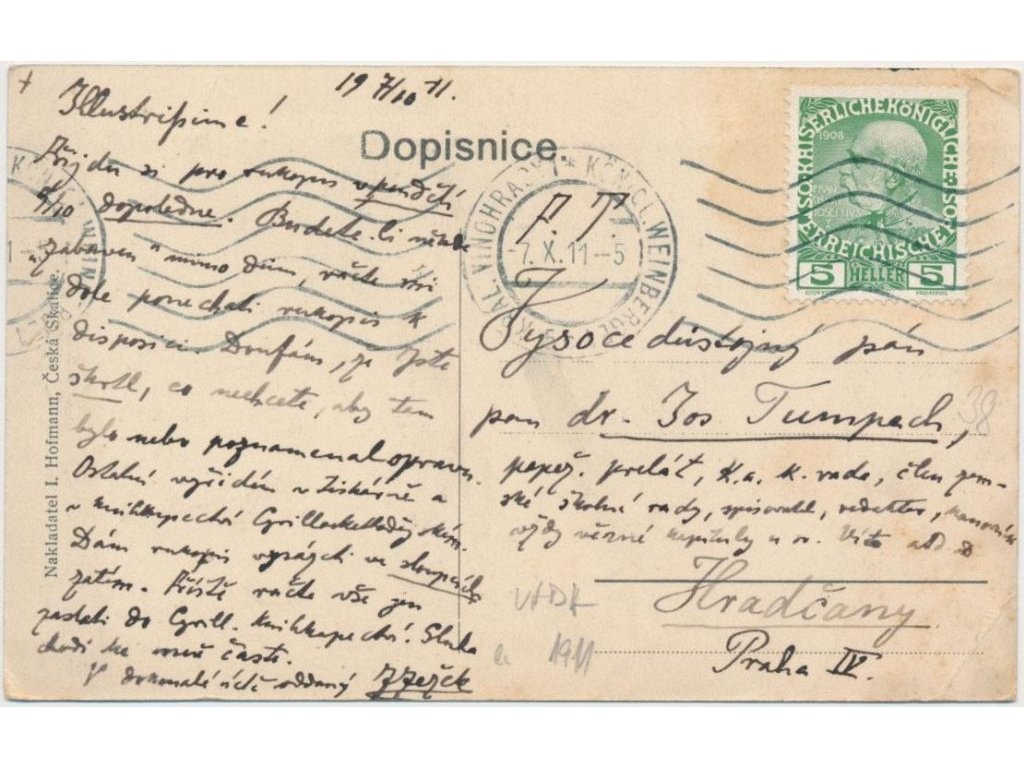 19 7/10 11.
Illustrissime!
Dopisnice.
Přijdu si pro rukopis v pondělí
9/10 dopoledne. Budete-li někde
"zabaven" mimo dům, račte
dole ponechati rukopis k
disposici. Doufám, že jste
škrtl, co nechcete, aby tam
bylo nebo poznamenal opravu.
Ostatní vyřídím v tiskárně a
v knihkupectví Cyrillomethodějském.
Dám rukopis vysázeti ve sloupcích
zatím. Příště račte vše jen
zaslati do Cyrill. knihkupectví. Sluha
chodí ke mně často.
V dokonalé úctě oddaný J Ježek
Nakladatel I. Hofmann, Česká Skalice.
KRÁL. VINOHRADY 1 * KÖNIGL. WEINBERGE
7.X.11-5
P. T.
KAISERLICHE KÖNIGLICHE ÖSTERREICHISCHE
1908
5 HELLER 5
Vysocedůstojný pán
pan dr. Jos Tumpach,
papež. prelát, k. a. k. rada, člen zem-
ské školní rady, spisovatel, redaktor, kanovník
vždy věrné kapituly u sv. Víta atd
Hradčany
Praha IV.
38
1911